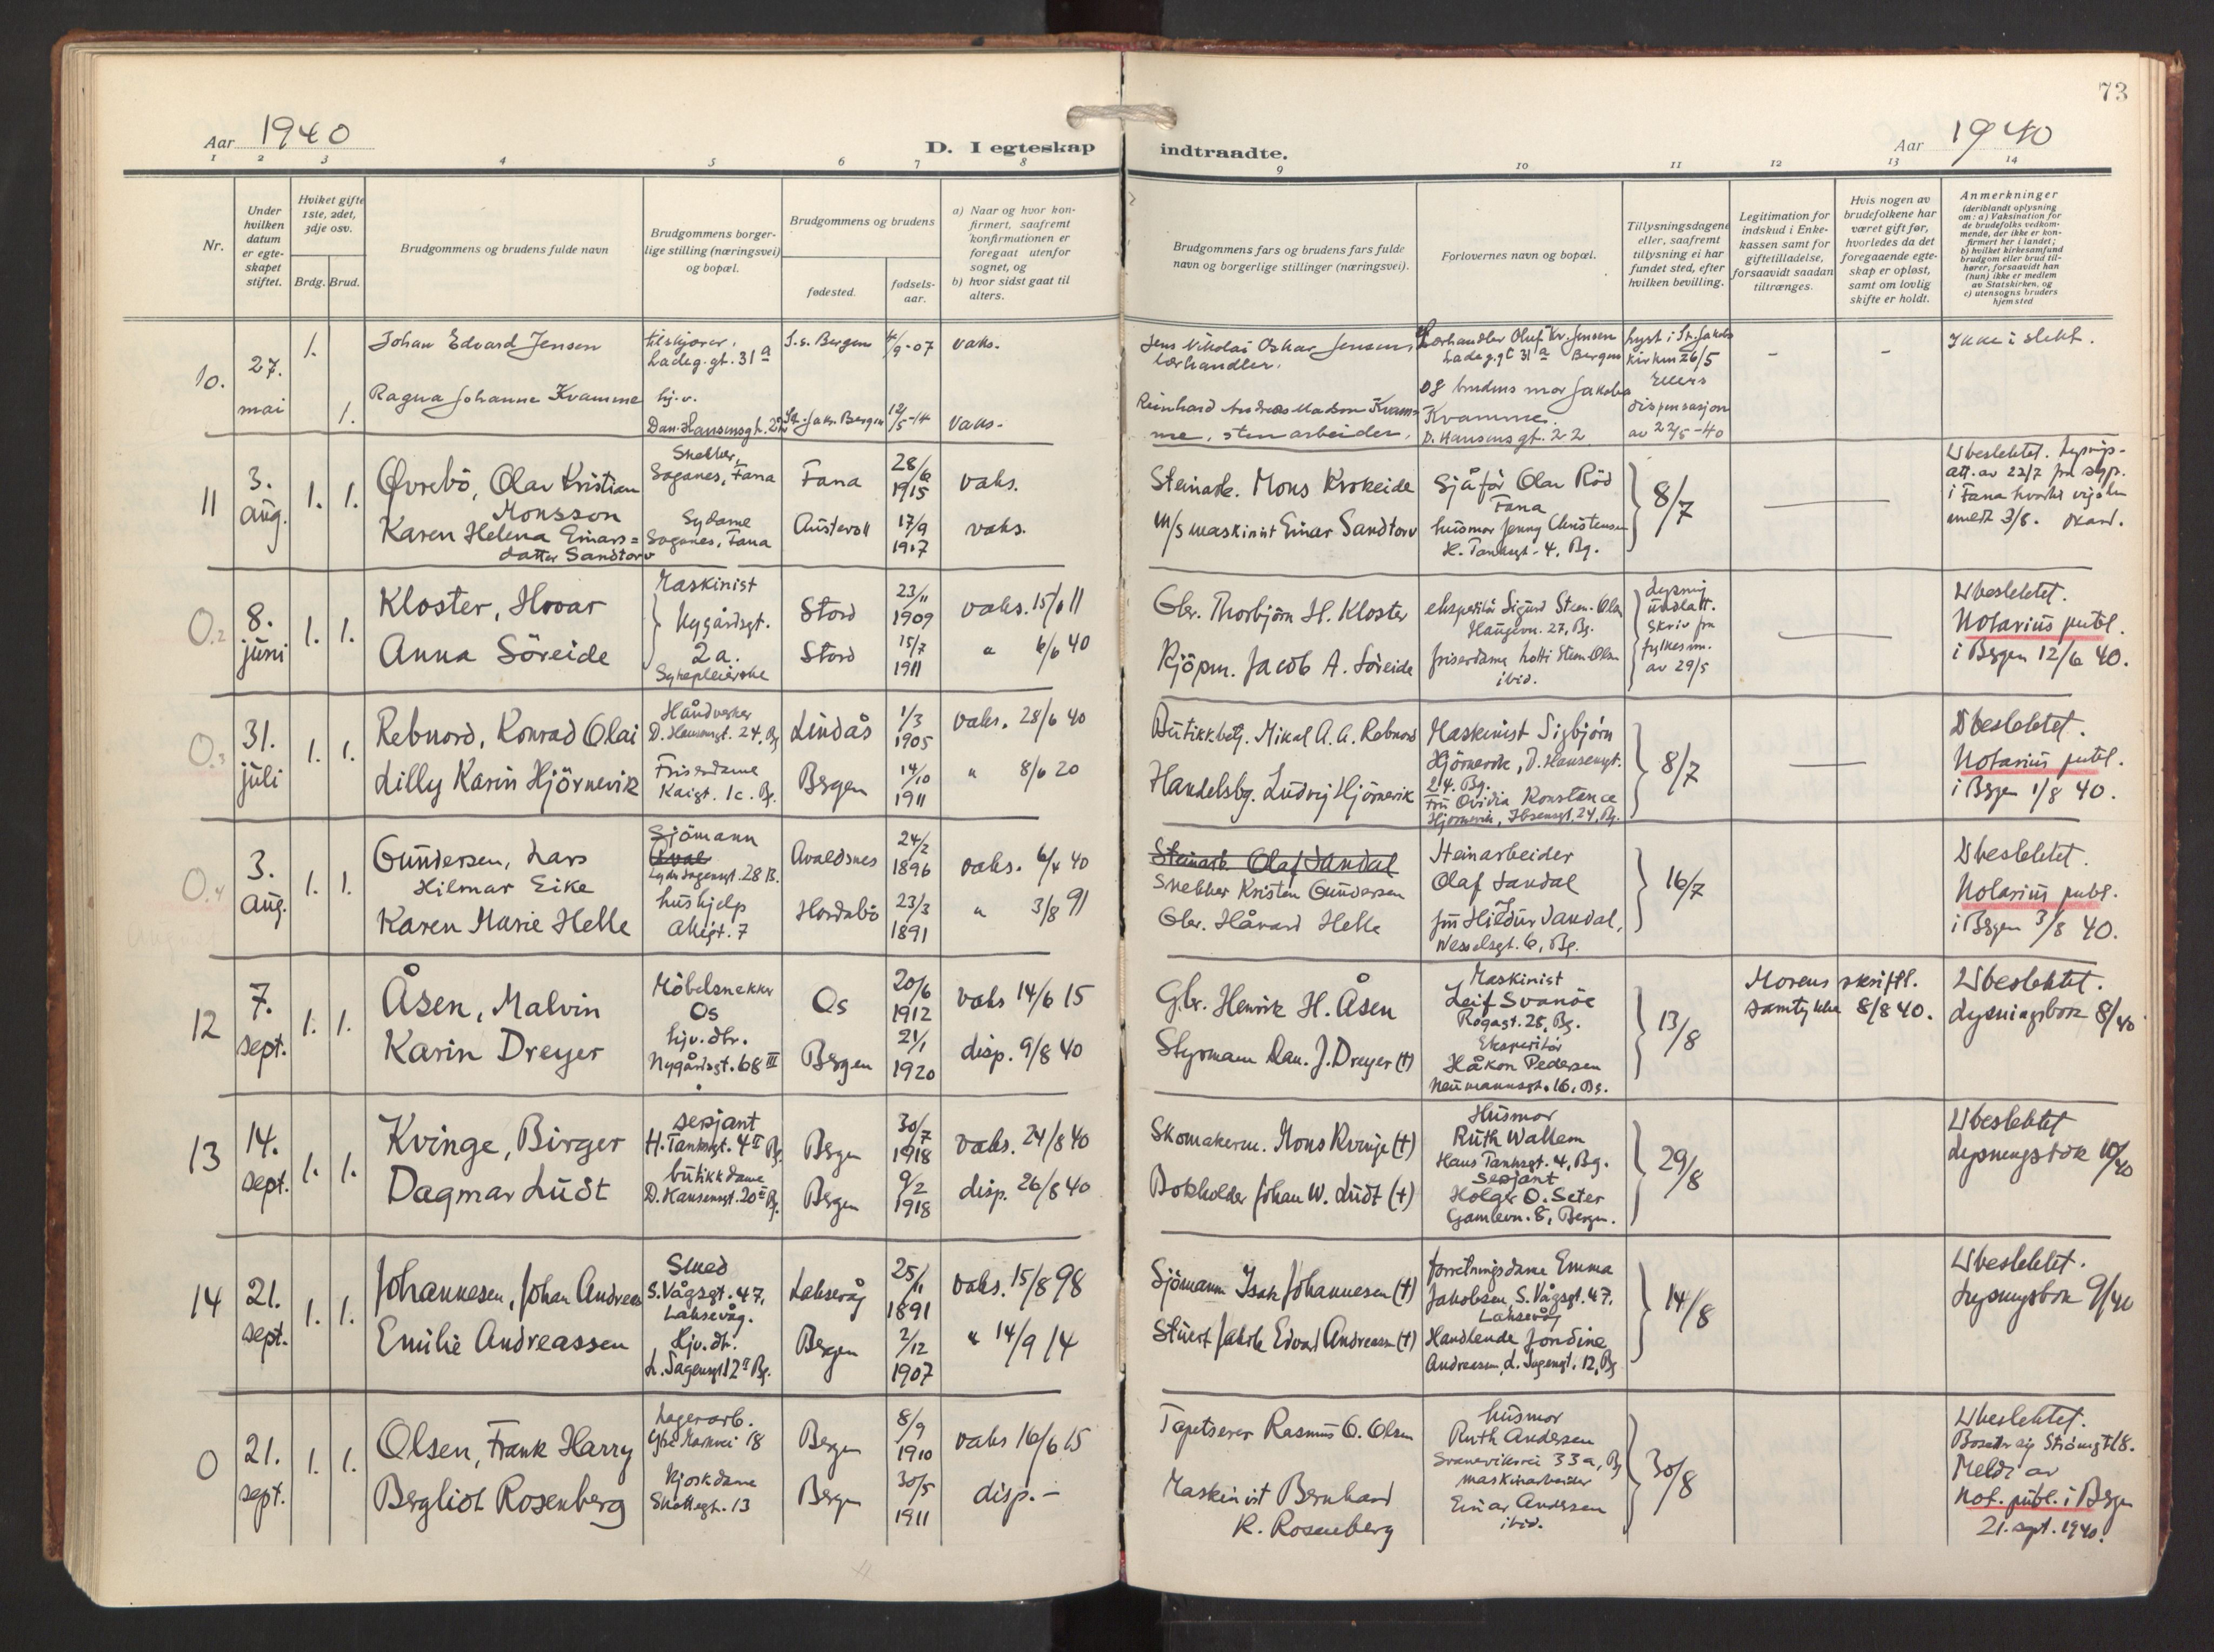 73
Aar 1940
D. I egteskap indtraadte.
Aar 1940
1 2 3 4 5 6 7 8 9 10 11 12 13 14
Nr.
Under
hvilken
datum
er egte-
skapet
stiftet.
Hvilket gifte
1ste, 2det,
3dje osv.
Brdg. Brud.
Brudgommens og brudens fulde navn
Brudgommens borger-
lige stilling (næringsvei)
og bopæl.
Brudgommens og brudens
fødested.
fødsels-
aar.
a) Naar og hvor kon-
firmert, saafremt
konfirmationen er
foregaat utenfor
sognet, og
b) hvor sidst gaat til
alters.
Brudgommens fars og brudens fars fulde
navn og borgerlige stillinger (næringsvei).
Forlovernes navn og bopæl.
Tillysningsdagene
eller, saafremt
tillysning ei har
fundet sted, efter
hvilken bevilling.
Legitimation for
indskud i Enke-
kassen samt for
giftetilladelse,
forsaavidt saadan
tiltrænges.
Hvis nogen av
brudefolkene har
været gift før,
hvorledes da det
foregaaende egte-
skap er opløst,
samt om lovlig
skifte er holdt.
Anmerkninger
(deriblandt oplysning
om: a) Vaksination for
de brudefolks vedkom-
mende, der ikke er kon-
firmert her i landet;
b) hvilket kirkesamfund
brudgom eller brud til-
hører, forsaavidt han
(hun) ikke er medlem
av Statskirken, og
c) utensogns bruders
hjemsted
10.
27.
mai
1.
1.
Johan Edvard Jensen
tilskjærer.
Ladeg. gt. 31a
Bergen
4/9-07
vaks.
Jens Nikolai Oskar Jensen,
lærhandler.
Lærhandler Oluf Kr. Jensen
Ladeg. gt 31a Bergen
lyst i St. Jakobs
kirken 26/5
-
-
Ikke i slekt.
Ragna Johanne Kvamme
hj.v.
Dan. Hansensgt. 22
St. Jak. Bergen
12/5-14
vaks.
Reinhard Andreas Madsen Kvam-
me, stenarbeider.
og brudens mor Jakoba
Kvamme.
D. Hansens gt. 22
Ellers
dispensasjon
av 22/5-40
11
3.
aug.
1. 1.
Øvrebö, Olav Kristian
Monsson
Snekker,
Søganes, Fana
Fana
28/6
1915
vaks.
Steinarb. Mons Krokeide
Sjåför Olav Röd
Fana
8/7
Ubeslektet. Lysnings-
att. av 22/7 fra sogp.
i Fana
meldt 3/8.
Karen Helena Einars=
datter Sandtorv
Sydame
Søganes, Fana
Austevoll
17/9
1917
vaks.
m/s maskinist Einar Sandtorv
husmor Jenny Christensen
H. Tanksgt. 4, Bg.
O.2
8.
juni
1. 1.
Kloster, Hovar
Maskinist
Nygårdsgt.
2a.
Stord
23/11
1909
vaks. 15/6 11
Gbr. Thorbjörn H. Kloster
ekspeditör Sigurd Steen-Olsen
Haugevn. 27, Bg.
Lysning
undlatt.
Skriv fra
fylkesm.
av 29/5
Ubeslektet.
Notarius publ.
i Bergen 12/6 40.
Anna Söreide
Sykepleierske
Stord
15/7
1911
" 6/6 40
Kjöpm. Jacob A. Söreide
friserdame Lotti Steen-Olsen
ibid.
O.3
31.
juli
1. 1.
Rebnord, Konrad Olai
Håndverker
D. Hansensgt. 24, Bg
Lindås
1/3
1905
vaks. 28/6 40
Butikkbetj. Mikal A. A. Rebnord
Maskinist Sigbjörn
Hjörnevik, D. Hansensgt.
24. Bg.
8/7
Ubeslektet.
Notarius publ.
i Bergen 1/8 40.
Lilly Karin Hjörnevik
Friserdame
Kaigt. 1c. Bg.
Bergen
14/10
1911
" 8/6 20
Handelsbg. Ludvig Hjörnevik
Fru Ovidia Konstance
Hjörnevik, Ibsensgt. 24, Bg.
O.4
3.
aug.
1. 1.
Gundersen, Lars
Hilmar Eike
Sjömann
Aval
Lyder Sagensgt. 28 B.
Avaldsnes
24/2
1896
vaks. 6/4 40
Steinarb. Olaf Sandal
Snekker Kristen Gundersen
Steinarbeider
Olaf Sandal
16/7
Ubeslektet.
Notarius publ.
i Bergen 3/8 40.
Karen Marie Helle
hushjelp
Allégt. 7
Hordabö
23/3
1891
" 3/8 91
Gbr. Håvard Helle
fru Hildur Sandal,
Wesselsgt. 6, Bg.
12
7.
sept.
1. 1.
Åsen, Malvin
Möbelsnekker
Os
Os
20/6
1912
vaks 14/6 15
Gbr. Henrik H. Åsen
Maskinist
Leif Svanöe
Rogagt. 28, Bg.
13/8
Morens skriftl.
samtykke 8/8 40.
Ubeslektet.
Lysningsbok 8/40
Karin Dreyer
hjv. dtr.
Nygårdsgt. 68 III
Bergen
21/1
1920
disp. 9/8 40
Styrmann Dan. J. Dreyer (†)
Ekspeditör
Håkon Pedersen
Neumannsgt. 16, Bg.
13
14.
sept.
1. 1.
Kvinge, Birger
sersjant
H. Tanksgt. 4 II Bg.
Bergen
30/7
1918
vaks. 24/8 40
Skomakerm. Mons Kvinge (†)
Husmor
Ruth Wallem
Hans Tanksgt. 4, Bg.
29/8
Ubeslektet
Lysningsbok 10/40
Dagmar Ludt
butikkdame
D. Hansensgt. 20 II Bg.
Bergen
9/2
1918
disp. 26/8 40
Bokholder Johan W. Ludt (†)
Sersjant
Holger O. Seter
Gamlevn. 8, Bergen.
14
21.
sept.
1. 1.
Johannesen, Johan Andreas
Smed
S. Vågsgt. 47,
Laksevåg.
Laksevåg
25/11
1891
vaks. 15/8 98
Sjömann Isak Johannesen (†)
forretningsdame Emma
Jakobsen, S. Vågsgt. 47,
Laksevåg
14/8
Ubeslektet.
Lysningsbok 9/40
Emilie Andreassen
Hjv. dt.
L. Sagensgt 12 II Bg.
Bergen
2/12
1907
" 14/9 14
Stuert Jakob Edvard Andreassen (†)
Handlende Jondine
Andreassen, L. Sagensgt. 12, Bg
O
21.
sept.
1. 1.
Olsen, Frank Harry
Lagerarb.
18
Bergen
8/9
1910
vaks 16/6 15
Tapetserer Rasmus O. Olsen
husmor
Ruth Andersen
Svaneviksvei 33a, Bg
30/8
Ubeslektet.
Bosetter sig Strömgt 18.
Meldt av
Not. publ. i Bergen
21. sept. 1940.
Bergliot Rosenberg
Kjoskdame
13
Bergen
30/5
1911
disp. -
Maskinist Bernhard
R. Rosenberg
maskinarbeider
Einar Andersen
ibid.